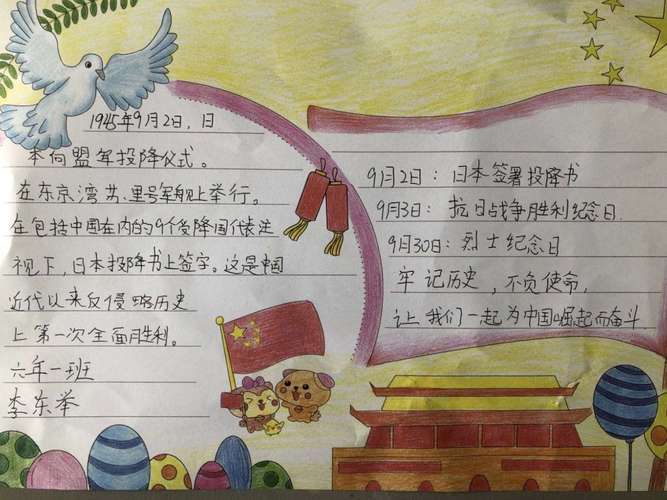 1945年9月2日，日
本向盟军投降仪式。
在东京湾苏里号军舰上举行。
在包括中国在内的9个受降国代表注
视下，日本投降书上签字。这是中国
近代以来反侵略历史
上第一次全面胜利。
六年一班
李东举
9月2日：日本签署投降书
9月3日：抗日战争胜利纪念日.
9月30日：烈士纪念日
牢记历史，不负使命，
让我们一起为中国崛起而奋斗.